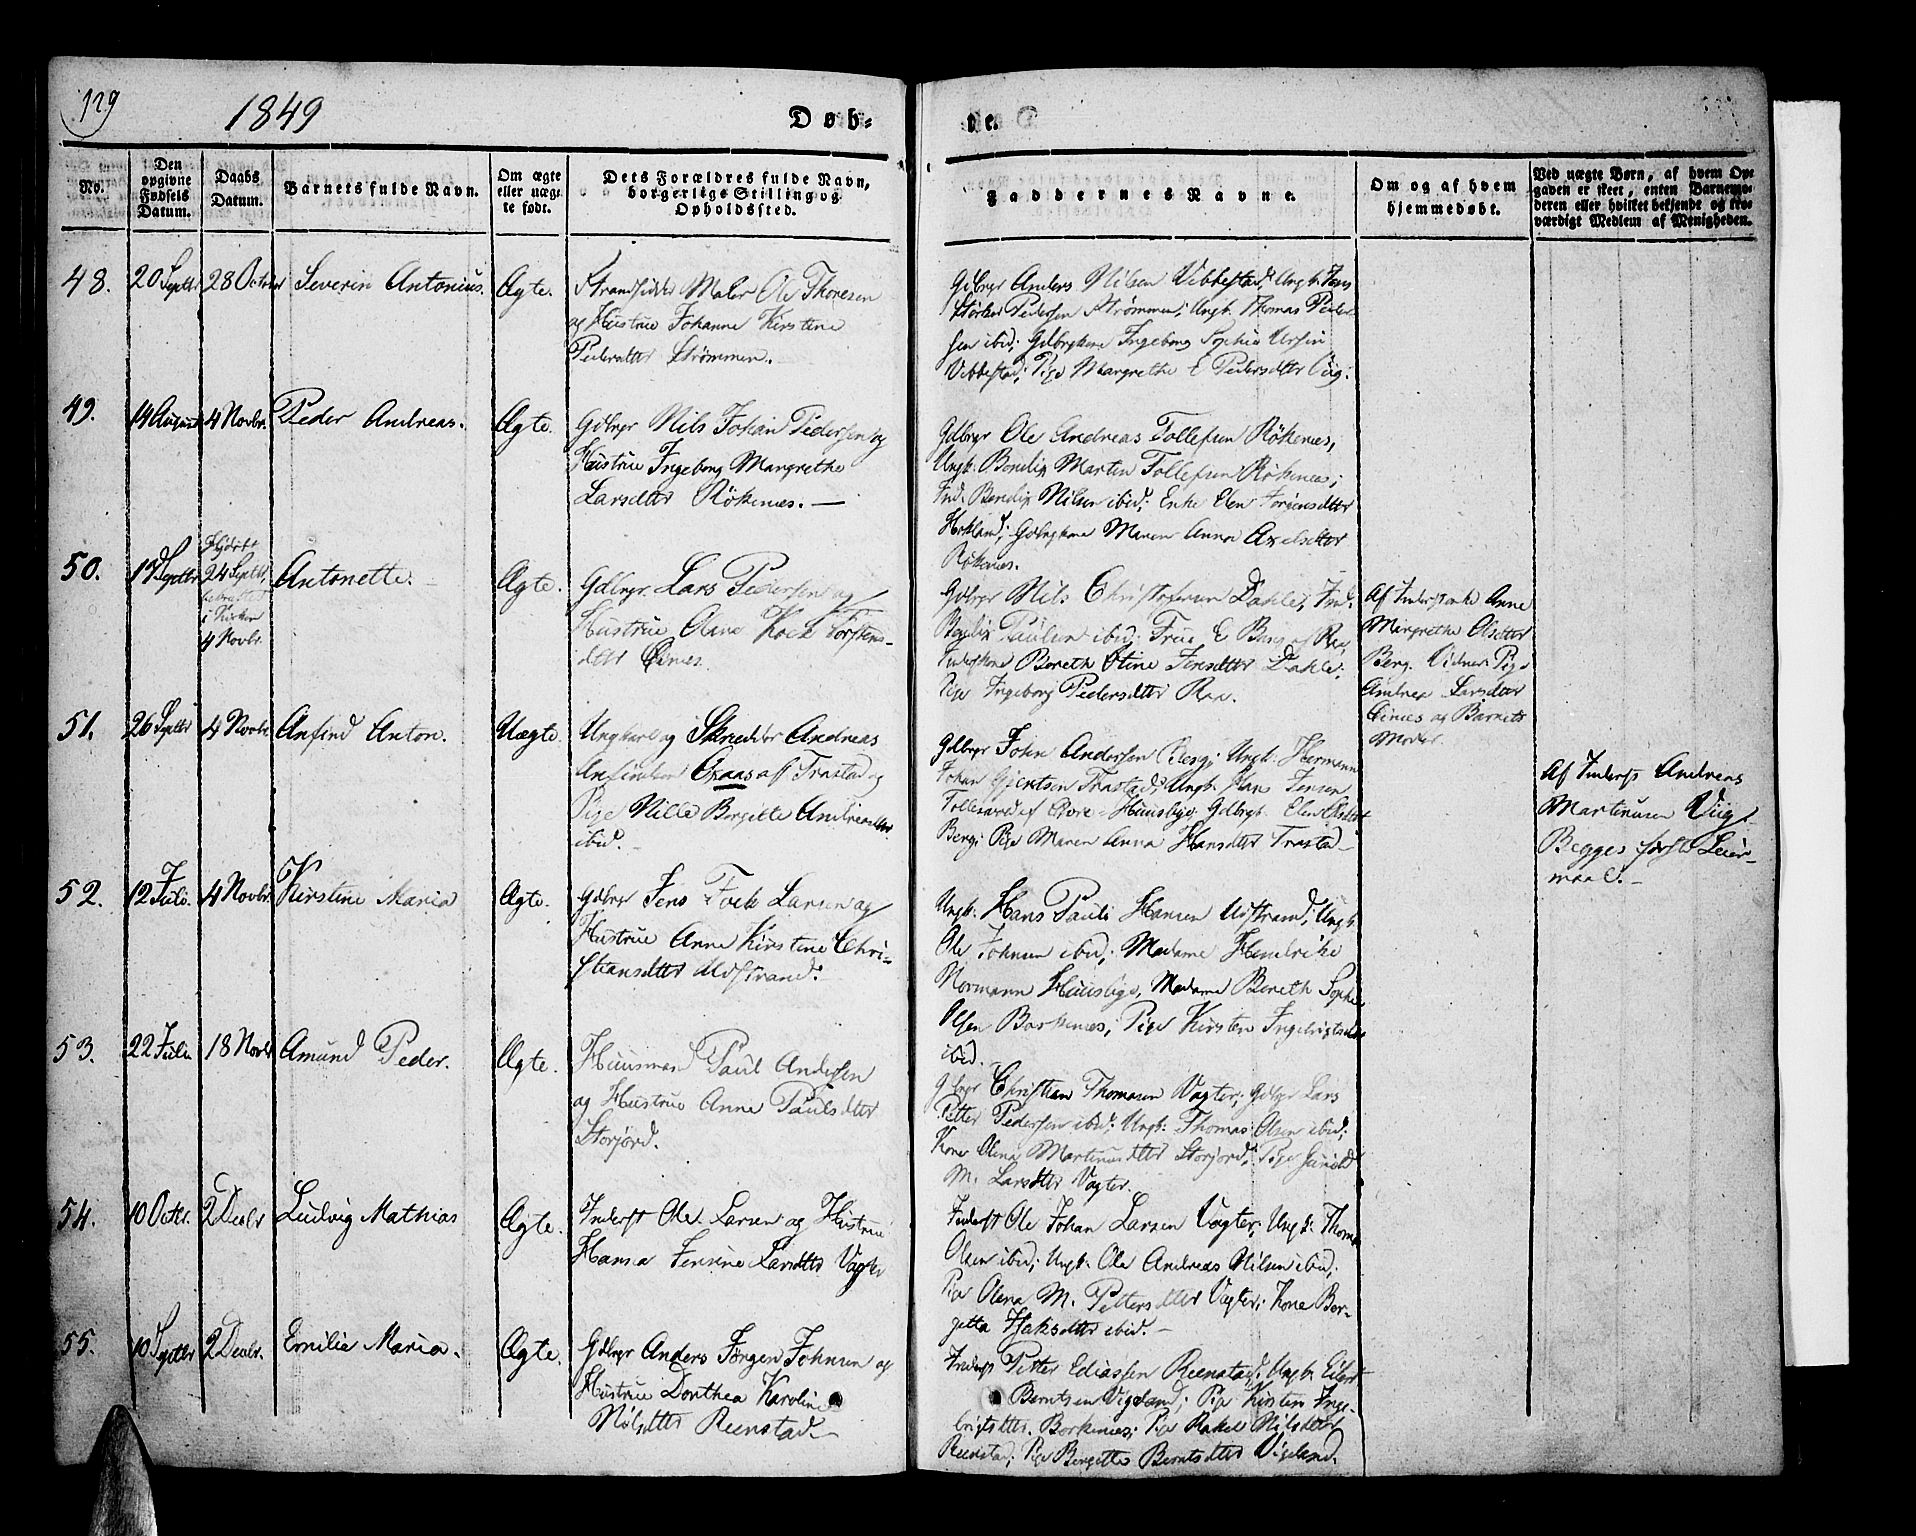 129
1849
Døb-
te.
No.
Den opgivne Fødsels Datum.
Daabs Datum.
Barnets fulde Navn.
Om ægte eller uægte født.
Dets Forældres fulde Navn, borgerlige Stilling og Opholdssted.
Faddernes Navne.
Om og af hvem hjemmedøbt.
Ved uægte Børn, af hvem Opgaven er skeet, enten Barnemoderen eller hvilket bekjendt og troværdigt Medlem af Menigheden.
48.
20 Septbr
28 October
Severin Antonius.
Ægte.
Strandsidder Maler Ole Thoresen
og Hustrue Johanne Kirstine
Pedersdtter Strømmen.
Gdbrgr Anders Nilsen Vibbestad; Ungk. Jens
Pedersen Strømmen; Ungk. Thomas Peder-
sen ibid; Gdbrgkone Ingeborg Sophia
Vibbestad; Pige Margrethe E Pedersdtter
49.
14 August
4 Novbr.
Peder Andreas.
Ægte.
Gdbrgr Nils Johan Pedersen og
Hustrue Ingeborg Margrethe
Larsdtter Rökenæs. —
Gdbrgr Ole Andreas Tollefsen Rökenæs,
Ungk. Bendix Martin Tollefsen Rökenæs;
Ind. Bendix Nilsen ibid; Enke Elen
Hokland; Gdbrgkone Maren Anna Axelsdtter
Rökenæs.
50.
17 Septbr
Hjdöbt
24 Septbr,
i Kirken
4 Novbr
Antonette.
Ægte.
Gdbrgr. Lars Pedersen og
Hustrue Olava Kock Torstens-
dtter
Gdbrgr Nils Christofersen Dahle; Ind.
Bendix Paulsen ibid; Frue E Bang af Rax,
Inderstkone Bereth Stine Jensdtter Dahle;
Pige Ingeborg Pedersdtter Rax.
Af Inderstenke Anne
Margrethe Olsdtter
Berg. Vidner: Pige
Andrea Larsdtter
og Barnets
Moder.
51.
26 Septbr
4 Novbr
Anfind Anton.
Uægte.
Ungkarl og Skredder Andreas
Anfindsen Graas af Trastad og
Pige Nille Bergitte Andreasdtter
ibid. —
Gdbrgr John Andersen Berg; Ungk. Hermann
Johan Gjertsen Trastad; Ungk. Hans Jensen
Huusbye, Gdbrgk. Elen Olsdtter
Berg; Pige Maren Anna Hansdtter Trastad —
Af Inderst Andreas
Martinusen Viig.
Begges første Leier-
maal. —
52.
12 Juli.
4 Novbr.
Kirstine Maria
Ægte.
Gdbrgr Jens Fock Larsen og
Hustrue Anne Kirstine Chri-
stiansdtter Midstrand.
Ungk. Hans Pauli Hansen Midstrand; Ungk.
Ole Johnsen ibid; Madame Hendrike
Normann Huusbye, Madame Bereth Sophie
Olsen Borkenæs; Pige Kirsten Ingebrigtsdtr
ibid.
53.
22 Juli
18 Novbr
Amund Peder.
Ægte.
Huusmand Paul Andersen
og Hustrue Anne Paulsdtter
Storjord.
Gdbrgr Christian Thomasen Vagter; Gdbrgr Lars
Petter Pedersen ibid; Ungk. Thomas Olsen ibid;
Kone Olena Martinusdtter Storjord; Pige Gunild
M. Larsdtter Vagter.
54.
10 Octbr.
2 Decbr
Ludvig Mathias
Ægte.
Inderst Ole Larsen og Hustrue
Hansa Jensine Larsdtter Vagter
Inderst Ole Johan Larsen Vagter; Ungk. Thomas
Olsen ibid; Ungk. Ole Andreas Nilsen ibid;
Pige Olena M. Pettersdtter Vagter; Kone Ber-
gitta Isaksdtter ibid. —
55.
10 Septbr
2 Decbr.
Emilie Maria.
Ægte.
Gdbrgr Anders Jörgen Johnsen og
Hustrue Dorthea Karoline
Nilsdtter Reenstad —
Inderst Petter Ediassen Reenstad; Ungk. Eilert
Berntsen Vigeland; Pige Kirsten Inge-
brigtsdtter. Borkenæs; Pige Rakel Nilsdtter
Reenstad; Pige Bergitte Berntsdtter Vigeland.